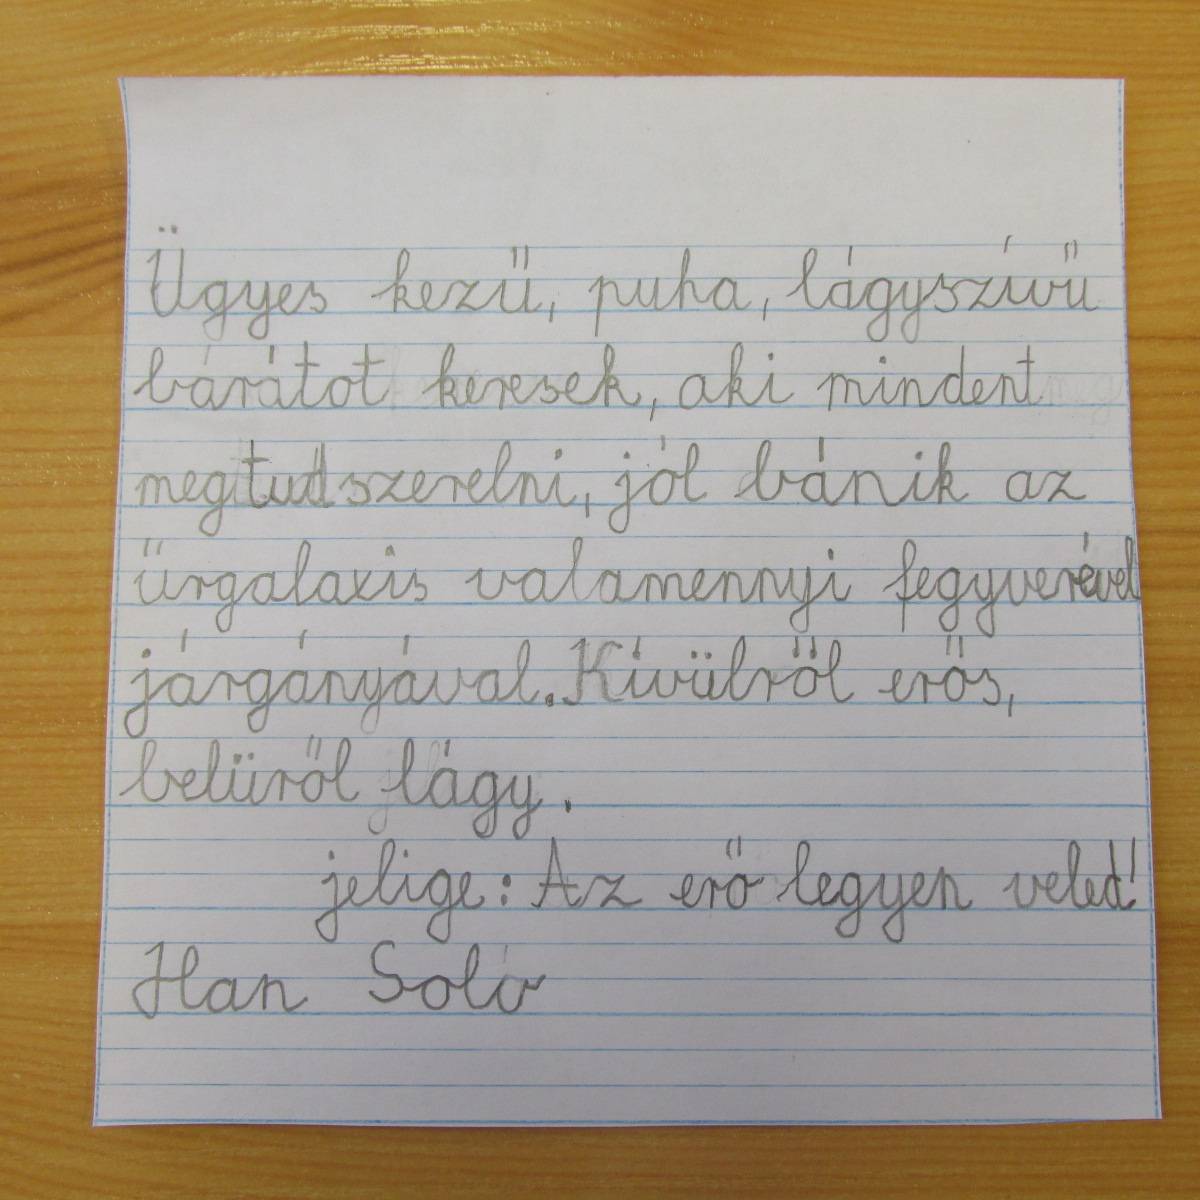 Ügyes kezű, puha, lágyszívű
bárátot keresek, aki mindent
megtudszerelni, jól bánik az
űrgalaxis valamennyi fegyverével
járgányával. Kívülről erős,
belüről lágy.
jelige: Az erő legyen veled!
Han Soló